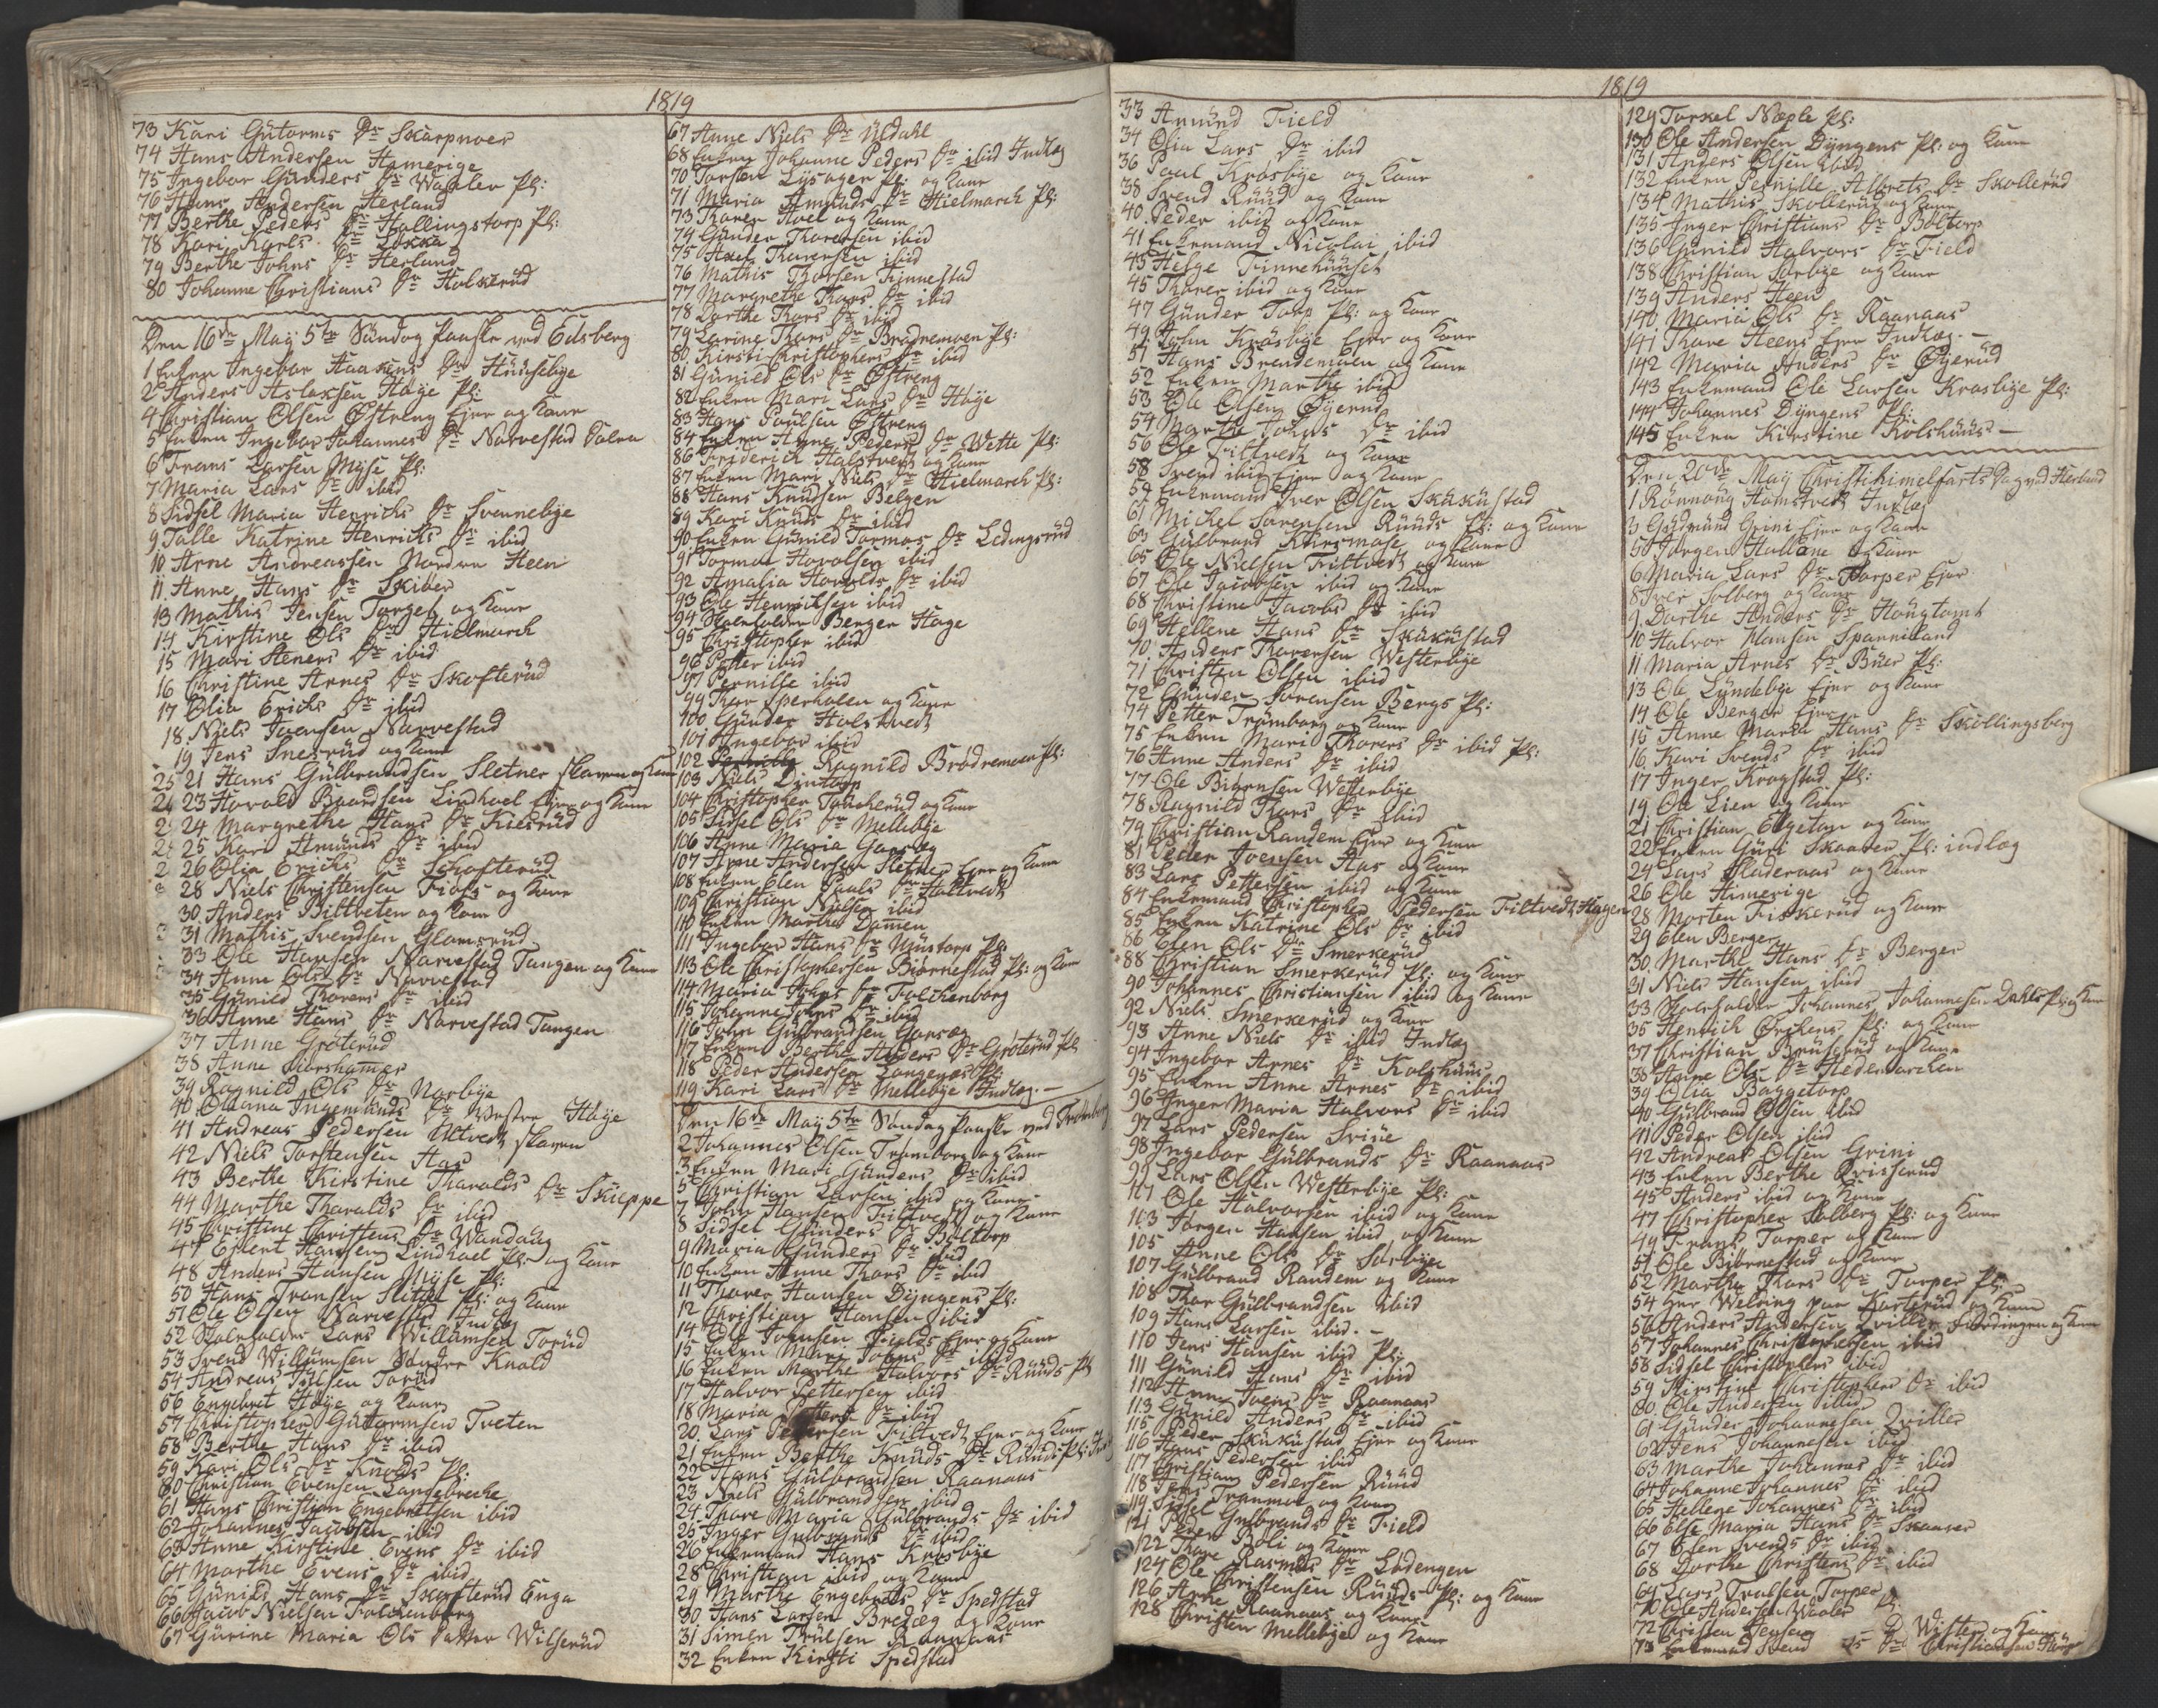 1819
73 Kari Gütorms Dr Skarpnoer
74 Hans Andersen Hamerige
75 Ingebor Gunders Dr Waaler Pl:
76 Hans Andersen Herland
77 Berthe Peders Dr Hallingstorp Pl:
78 Kari Karls Dr Løkka
79 Berthe Johns Dr Herland
80 Johanne Christians Dr Holserüd
Den 16de Maÿ 5te Søndag Paaske ved Edsberg
1 Enken Ingebor Haakens Dr Hüüsebÿe
2 Anders Aslaksen Høÿe Pl:
4 Christian Olsen Østreng Ejer og Kone
5 Enken Ingebor Johannes Dr Narvestad
6 Frans Larsen Mÿse Pl:
7 Maria Lars Dr ibid
8 Sidsel Maria Henrichs Dr Svennebÿe
9 Talle Katrine Henrichs Dr ibid
10 Arne Andreassen Nordre Heen
11 Anne Hans Dr Skiber
13 Mathis Jensen Torgel og Kone
14 Kirstine Ols Dr Hielmarch
15 Mari Steners Dr ibid
16 Christine Arnes Dr Skofterüd
17 Olia Erichs Dr ibid
18 Niels Joensen Narvestad
19 Jens Snesrüd og Kone
21 Hans Gülbrandsen Sletner
23 Harald Baardsen Lindhoel Ejer og Kone
24 Margrethe Hans Dr Kilsrüd
25 Kari Amünds Dr ibid
26 Olia Erichs Dr Skofterüd
28 Niels Christensen Fiøs og Kone
30 Anders Bittveten og Kone
31 Mathis Svendsen Glomsrüd
33 Ole Hansen Narvestad Tangen og Kone
34 Anne Ols Dr Narvestad
35 Günild Thorers Dr ibid
36 Anne Hans Dr Narvestad Tangen
37 Anne Grøterüd
38 Anne
39 Ragnild Ols Dr Narbÿe
40 Oleana Ingemunds Dr Westre Høÿe
41 Andreas Pedersen Ultvedt
42 Niels Torstensen Aas
43 Berthe Kirstine Tharalds Dr Skieppe
44 Marthe Tharalds Dr ibid
45 Christine Christens Dr Wandaüg
47 Eilert Hansen Lindhoel Pl: og Kone
48 Anders Hansen Mÿse Pl:
50 Hans Fransen Sletta Pl: og Kone
51 Ole Olsen Narvestad Indlæg
52 Skoleholder Lars Willumsen Torüd
53 Svend Willumsen Søndre Knold
54 Andreas Nilsen Torüd
56 Engebret Høÿe og Kone
57 Christopher Guttormsen Tveten
58 Berthe Hans Dr ibid
59 Kari Ols Dr Knolds Pl:
60 Christian Evensen Langebreche
61 Hans Christian Engebretsen ibid
62 Johannes Jacobsen ibid
63 Anne Kirstine Evens Dr ibid
64 Marthe Evens Dr ibid
65 Günild Hans Dr Skofterüd Enga
66 Jacob Nielsen Falchenborg
67 Gurine Maria Ols Datter Wilserüd
67 Anne Niels Dr Üldahl
68 Enken Johanne Peders Dr ibid Indlæg
70 Torsten Lÿsager Pl: og Kone
71 Maria Amünds Dr Hielmarch Pl:
73 Thorer Hoel og Kone
74 Günder Thoresen ibid
75 Axel Thoresen ibid
76 Mathis Thorsen Finnestad
77 Margrethe Thors Dr ibid
78 Dorthe Thors Dr ibid
79 Larine Thors Dr Brødremoen Pl:
80 Kirsti Christophers Dr ibid
81 Günild Ols Dr Østreng
82 Enken Mari Lars Dr Høÿe
83 Hans Poulsen Østreng
84 Enken Anne Peders Dr Wette Pl:
86 Friderich Halstvedt og Kone
87 Enken Mari Niels Dr Hielmarch Pl:
88 Hans Knüdsen Belgen
89 Kari Knüds Dr ibid
90 Enken Günild Tormos Dr Ledingsrüd
91 Tormod Haralsen ibid
92 Amalia Haralds Dr ibid
93 Ole Henriksen ibid
94 Skoleholder Berger Høÿe
95 Christopher ibid
96 Peter ibid
97 Pernille ibid
99 Thor Sperhølen og Kone
100 Günder Holstvedt
101 Ingebor ibid
102 Ragnild Brødremoen Pl:
103 Niels Lintorp
104 Christopher og Kone
105 Sidsel Ols Dr Mellebÿe
106 Anne Maria Gaaseg
107 Arne Andersen Sletner Ejer og Kone
108 Enken Elen Pauls Dr Holtvedt
109 Christian Nielsen ibid
110 Enken Marthe Damen
111 Ingebor Hans Dr Pl:
113 Ole Christophersen Biørnestad Pl: og Kone
114 Maria Johns Dr Falchenborg
115 Johanne Johns Dr ibid
116 John Gülbrandsen
117 Enken Berthe Anders Dr Grøterüd Pl:
118 Peder Andersen Pl:
119 Kari Lars Dr Mellebÿe Indlæg.
Den 16de Maÿ 5te Søndag Paaske ved
2 Johannes Olsen Trømborg og Kone
3 Enken Mari Günders Dr ibid
5 Christian Larsen ibid og Kone
7 John Hansen Filtvedt og Kone
8 Sidsel Günders Dr Boltorp
9 Maria Günders Dr ibid
10 Enken Anne Thors Dr ibid
11 Thorer Hansen Dÿngens Pl:
12 Christian Hansen ibid
14 Ole Johnsen Fields Ejer og Kone
15 Enken Mari Johns Dr ibid
16 Enken Marthe Halvors Dr Rüüds Pl
17 Halvor Pettersen ibid
18 Maria Petters Dr ibid
20 Lars Pedersen Filtvedt Ejer og Kone
21 Enken Berthe Knüds Dr Rüüds Pl:
22 Hans Gülbrandsen Raanaas
23 Niels Gülbrandsen ibid
24 Thore Maria Gülbrands Dr ibid
25 Inger Gülbrands Dr ibid
26 Enkemand Hans Krosbÿe
28 Christian ibid og Kone
29 Marthe Engebrets Dr Spedstad
30 Hans Larsen Bredeg og Kone
31 Simen Trülsen Raanaas
32 Enken Kirsti Spedstad
1819
33 Amünd Field
34 Olia Lars Dr ibid
36 Poul Krosbÿe og Kone
38 Svend Rüüd og Kone
40 Peder ibid og Kone
41 Enkemand Nicolai ibid
43 Helge Finnehüüset
45 Thorer ibid og Kone
47 Günder Torp Pl: og Kone
49 John Krosbÿe Ejer og Kone
51 Hans Brendemoen og Kone
52 Enken Marthe ibid
53 Ole Olsen Øÿerüd
54 Marthe Johns Dr ibid
56 Ole Filtvedt og Kone
58 Svend ibid Ejer og Kone
59 Enkemand Iver Olsen Skükustad
61 Michel Sørensen Rüüds Pl: og Kone
63 Gülbrand og Kone
65 Ole Nielsen Filtvedt og Kone
67 Ole Jacobsen ibid og Kone
68 Christine Jacobs Dr ibid
69 Hellene Hans Dr Skükustad
70 Anders Thoresen Westerbÿe
71 Christen Olsen ibid
72 Günder Sørensen Bergs Pl:
74 Petter Trømborg og Kone
75 Enken Mari Thorers Dr ibid Pl:
76 Anne Anders Dr ibid
77 Ole Biørnsen Westerbÿe
78 Ragnild Thors Dr ibid
79 Christian Randem Ejer og Kone
81 Peder Joensen Aas og Kone
83 Lars Pettersen ibid og Kone
84 Enkemand Christopher Pedersen Filtvedt Hagen
85 Enken Katrine Ols Dr ibid
86 Elen Ols Dr Smerkerüd
88 Christian Smerkerüd Pl: og Kone
90 Johannes Christiansen ibid og Kone
92 Niels Smerkerüd og Kone
93 Anne Niels Dr ibid Indlæg
94 Ingebor Arnes Dr Kolshüüs
95 Enken Anne Arnes Dr ibid
96 Inger Maria Halvors Dr ibid
97 Lars Pedersen
98 Ingebor Gülbrands Dr Raanaas
99 Lars Olsen Westerbÿe Pl:
101 Ole Halvorsen ibid og Kone
103 Jørgen Hansen ibid og Kone
105 Anne Ols Dr Sørbÿe
107 Gülbrand Randem og Kone
108 Thor Gülbrandsen ibid
109 Hans Larsen ibid.
110 Jens Hansen ibid Pl:
111 Günild Hans Dr ibid
112 Anne Joens Dr Raanaas
113 Günild Anders Dr ibid
115 Peder Skükustad Ejer og Kone
116 Hans Pedersen ibid
117 Christian Pedersen Rüüd
118 Jens Tranmoe og Kone
119 Sidsel Gulbrands Dr Field
121 Peder Boli og Kone
122 Thore Rasmus Dr Lødengen
124 Ole Christensen Rüüds Pl: og Kone
126 Arne Raanaas og Kone
128 Christen Mellebÿe og Kone
129 Torkel Næple Pl:
130 Ole Andersen Dÿngens Pl: og Kone
131 Anders Olsen ibid
132 Enken Pernille Albrets Dr Skollerüd
134 Mathis Skollerüd og Kone
135 Inger Christians Dr Boltorp
136 Günild Halvors Dr Field
138 Christian Sørbÿe og Kone
139 Anders Heen
140 Maria Ols Dr Raanaas
141 Thore Heens Ejer Indlæg.
142 Maria Anders Dr Øÿerüd
143 Enkemand Ole Larsen Krosbÿe Pl:
144 Johannes Dÿngens Pl:
145 Enken Kirstine Kolshüüs
Den 20de Maÿ Christi himelfarts Dag ved Herland
1 Rønnaüg Homstvedt Indlæg
3 Gudmünd Grini Ejer og Kone
5 Jørgen Hallane og Kone
6 Maria Lars Dr Torper Ejer
8 Iver Solberg og Kone
9 Dorthe Anders Dr Haugtomt
10 Halvor Hansen Sparniland
11 Maria Arnes Dr Büer Pl:
13 Ole Lündebÿe Ejer og Kone
14 Ole Berger Ejer
15 Anne Maria Hans Dr Skøllingsberg
16 Kari Svends Dr ibid
17 Inger Krogstad Pl:
19 Ole Lien og Kone
21 Christian Elgetun og Kone
22 Enken Güri Skaarer Pl: indlæg
24 Lars Sladeraas og Kone
26 Ole Himerige
28 Morten Fiskerüd og Kone
29 Elen Berger
30 Marthe Hans Dr Berger
31 Niels Hansen ibid
33 Skoleholder Johannes Johannesen Dahls Pl: og Kone
35 Henrich Pl: og Kone
37 Christian og Kone
38 Anne Ols Dr Hedemarchen
39 Olia Baggetorp
40 Gulbrand Olsen ibid
41 Peder Olsen ibid
42 Andreas Olsen Grini
43 Enken Berthe
45 Anders ibid og Kone
47 Christopher Solberg Pl: og Kone
49 Frants Torper og Kone
51 Ole Biørnestad og Kone
52 Marthe Thors Dr Torper Pl:
54 Hr Welding paa Korterüd og Kone
56 Anders Andersen og Kone
57 Johannes Christophersen ibid
58 Sidsel Christophers ibid
59 Kirstine Christophers Dr ibid
60 Ole Andersen ibid
61 Günder Johannesen
62 Jens Johannesen ibid
63 Marthe Johannes Dr ibid
64 Johanne Johannes Dr ibid
65 Hellene Johannes Dr ibid
66 Else Maria Hans Dr Skaarer
67 Elen Svends Dr ibid
68 Dorthe Christens Dr ibid
69 Lars Trulsen Torper
70 Ole Andersen Waaler Pl:
72 Christen Jensen og Kone
73 Enkemand Svend